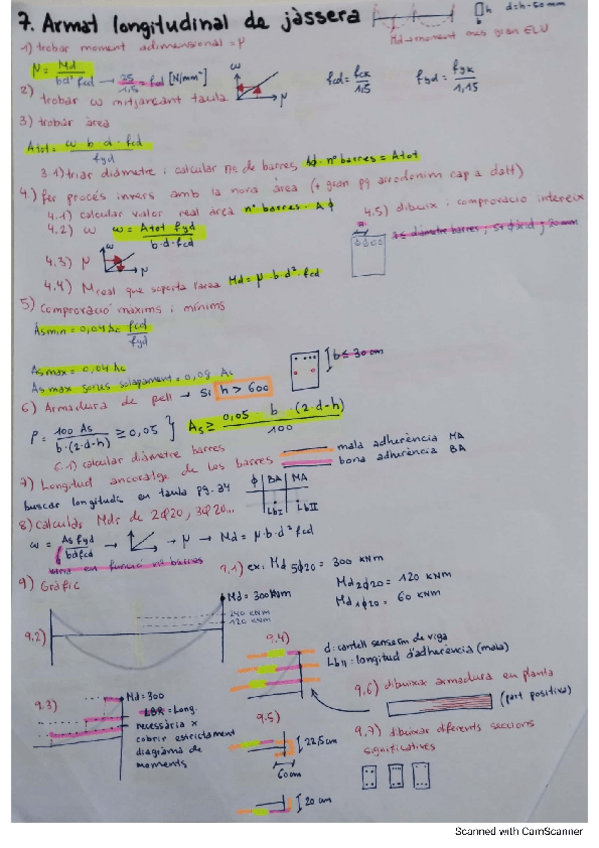 7. Armat longitudinal de jàssera
h d=h-50mm
Md→moment més gran ELU
1) trobar moment adimensional = μ
μ = Md / bd² fcd → 25/1,5 = fcd [N/mm²]
ω
μ
fcd = fck/1,5 fyd = fyk/1,15
2) trobar ω mitjançant taula
3) trobar àrea
Atot = ω · b · d · fcd / fyd
3.1) triar diàmetre i calcular nº de barres Aϕ · nº barres = Atot
4) fer procés invers amb la nova àrea (+ gran pq arrodonim cap a dalt)
4.1) calcular valor real àrea nº barres · Aϕ
4.2) ω ω = Atot fyd / b·d·fcd
4.3) μ
ω
μ
4.4) M real que soporta l'àrea Md = μ · b · d² · fcd
4.5) dibuix i comprovació intereix
5) comprovació màxims i mínims
Asmin = 0,04 Ac fcd/fyd
As max = 0,04 Ac
As max sense solapament = 0,08 Ac
b ≤ 30 cm
6) Armadura de pell → si h > 600
ρ = 100 As / b·(2·d-h) ≥ 0,05 } As ≥ 0,05 · b · (2·d-h) / 100
6.1) calcular diàmetre barres
mala adherència MA
bona adherència BA
7) Longitud ancoratge de les barres
buscar longituds en taula pg. 24
ϕ BA MA
LbI LbII
8) calculas Mds de 2ϕ20, 3ϕ20...
ω = As fyd / bdfcd → → μ → Md = μ·b·d² fcd
àrea en funció nº barres
9) Gràfic
9.1) ex: Md 5ϕ20 = 300 kNm
Md 2ϕ20 = 120 kNm
Md 1ϕ20 = 60 kNm
Md = 300kNm
240 kNm
120 kNm
9.2)
9.3)
Md = 300
= Long.
necessària x
cobrir estrictament
diagrama de
moments
9.4)
d: cantell sensem de viga
LbII: longitud d'adherència (mala)
9.5)
22,5cm
60cm
20 cm
9.6) dibuixar armadura en planta
(part positiva)
9.7) dibuixar diferents seccions
significatives
Scanned with CamScanner